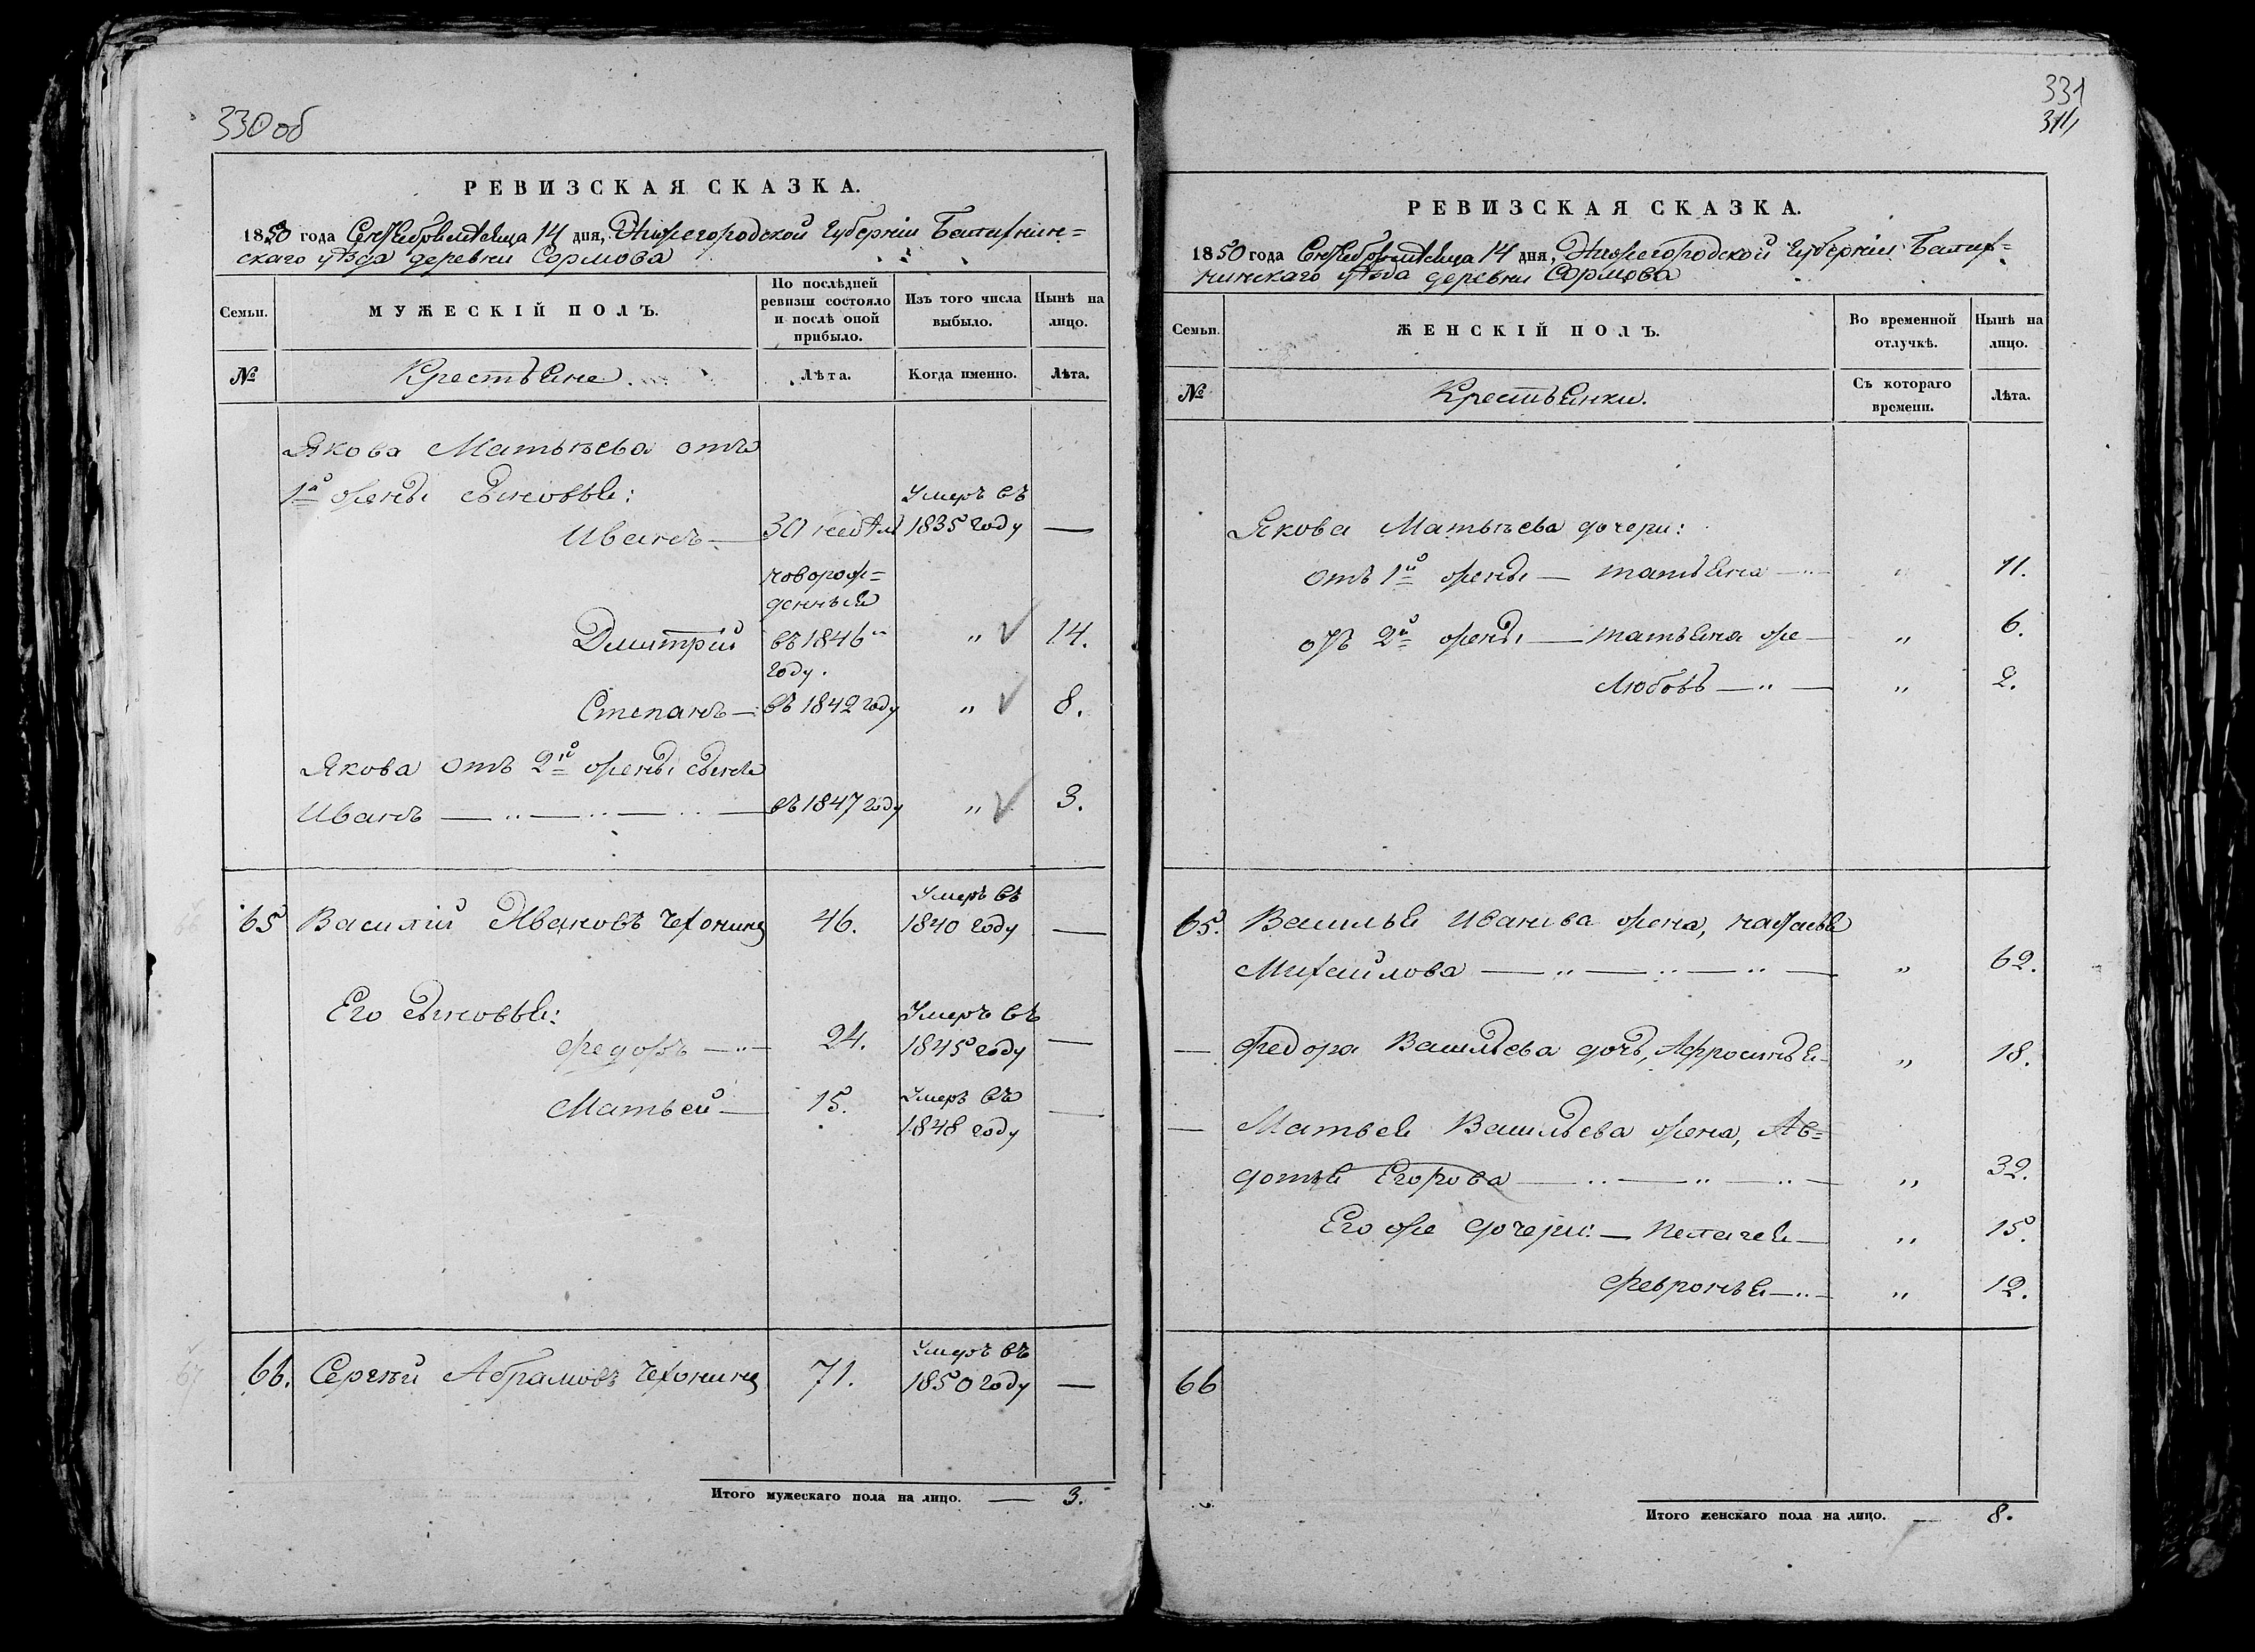 330 об
РЕВИЗСКАЯ СКАЗКА.
1850 года Сентября месяца 14 дня, Нижегородской Губерніи Балахнин=
скаго уѣзда деревни Сормова
Семьи.
МУЖЕСКІЙ ПОЛЪ.
По послѣдней
ревизіи состояло
и послѣ оной
прибыло.
Изъ того числа
выбыло.
Нынѣ на
лицо.
№
Крестьяне.
Лѣта.
Когда именно.
Лѣта.
Якова Матвѣева отъ
1й жены сыновья:
Иванъ — 30 недѣл Умеръ въ 1835 году —
Дмитрій новорож=
денный
въ 1846
году. " 14.
Степанъ — въ 1842 году " 8.
Якова отъ 2й жены сынъ
Иванъ — " — " — " — въ 1847 году " 3.
65 Василій Ивановъ Чехонинъ 46. Умеръ въ
1840 году —
Его сыновья:
Федоръ — " — 24. Умеръ въ
1845 году —
Матвей — 15. Умеръ въ
1848 году —
66. Сергѣй Абрамовъ Чехонинъ 71. Умеръ въ
1850 году —
Итого мужескаго пола на лицо. — 3.
331
311
РЕВИЗСКАЯ СКАЗКА.
1850 года Сентября месяца 14 дня, Нижегородской Губерніи Балах=
нинскаго уѣзда деревни Сормова
Семьи.
ЖЕНСКІЙ ПОЛЪ.
Во временной
отлучкѣ.
Нынѣ на
лицо.
№
Крестьянки.
Съ котораго
времени.
Лѣта.
Якова Матвѣева дочери:
отъ 1й жены — Татьяна — " — " 11.
отъ 2й жены — Татьяна же — " 6.
Любовь — " — " 2.
65. Василья Иванова жена, Настасья
Михайлова — " — " — " — " 62.
— Федора Васильева дочь, Афросинья — " 18.
— Матвея Васильева жена, Ав=
дотья Егорова — " — " — " — " 32.
Его же дочери: — Пелагея — " 15.
Февронья — " — " 12.
66
Итого женскаго пола на лицо. — 8.